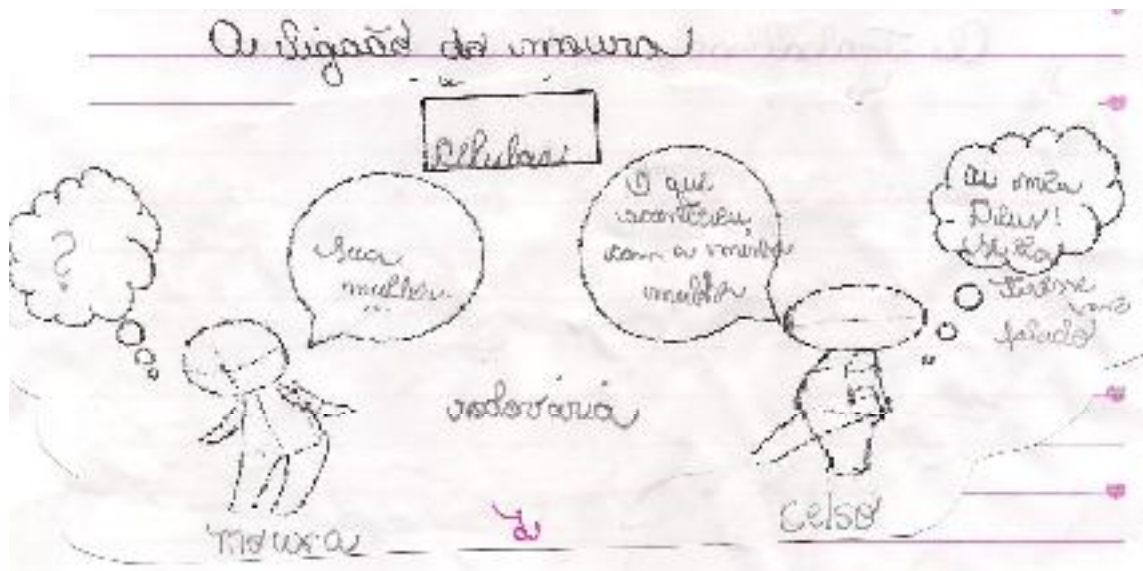 A ligação do moura
?
Sua
mulher
...
O que
aconteceu
com a minha
mulher
Ai meu
Deus!
tivesse
me
falado
rodoviária
moura
Celso